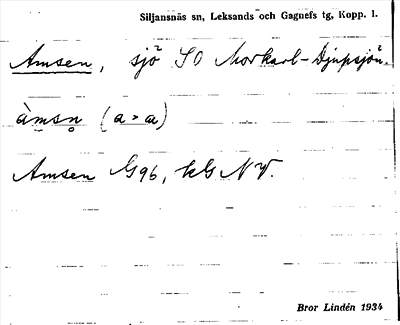 Siljansnäs sn, Leksands och Gagnefs tg, Kopp. l.
Amsen, sjö SO Morkarl-Djupsjön.
àmsn̥ (a > a)
Amsen G96, kG NV.
Bror Lindén 1934